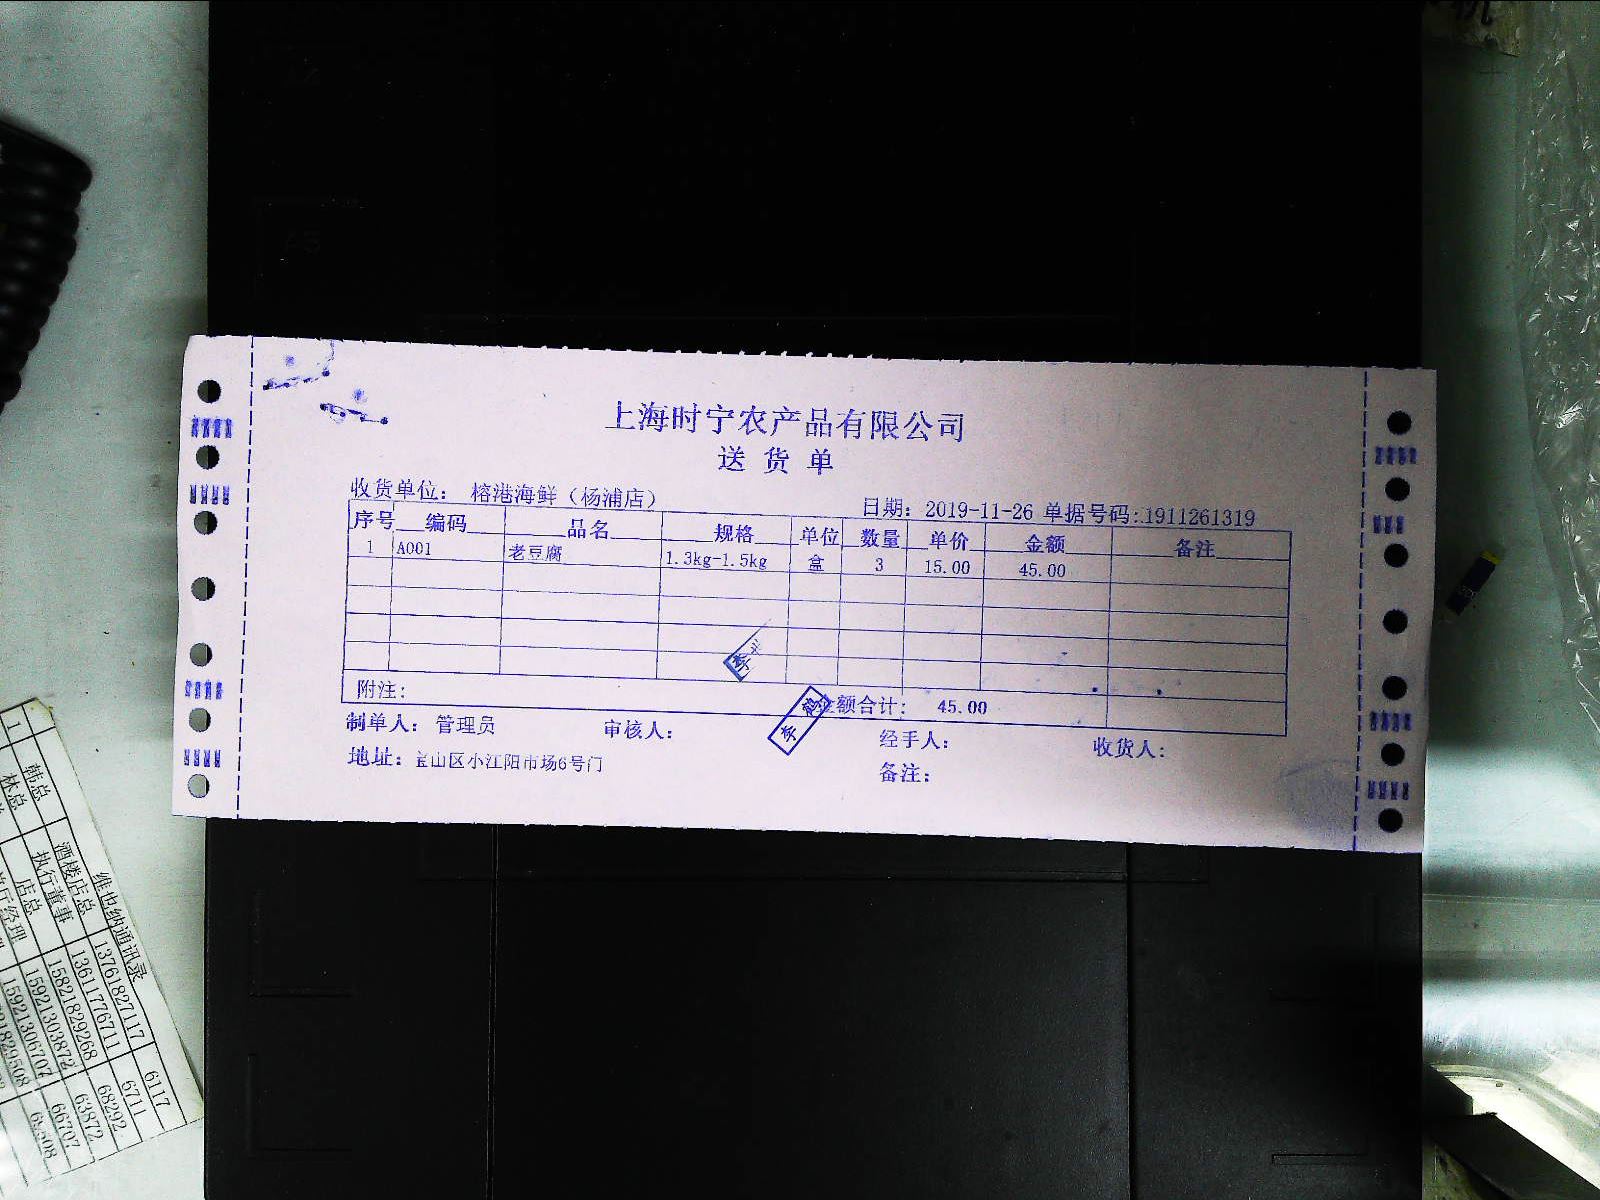 上海时宁农产品有限公司
送 货 单
收货单位： 榕港海鲜（杨浦店）
日期：2019-11-26 单据号码:1911261319
序号 编码 品名 规格 单位 数量 单价 金额 备注
1 A001 老豆腐 1.3kg-1.5kg 盒 3 15.00 45.00
附注: 金额合计: 45.00
制单人：管理员 审核人: 经手人: 收货人:
地址：宝山区小江阳市场6号门 备注:
李
李
A5
维也纳通讯录
酒楼店总 13761827117 6117
韩总 执行董事 13611776711 6711
林总 店总 15821829268 68292
15921303872 63872
15921306707 66707
1